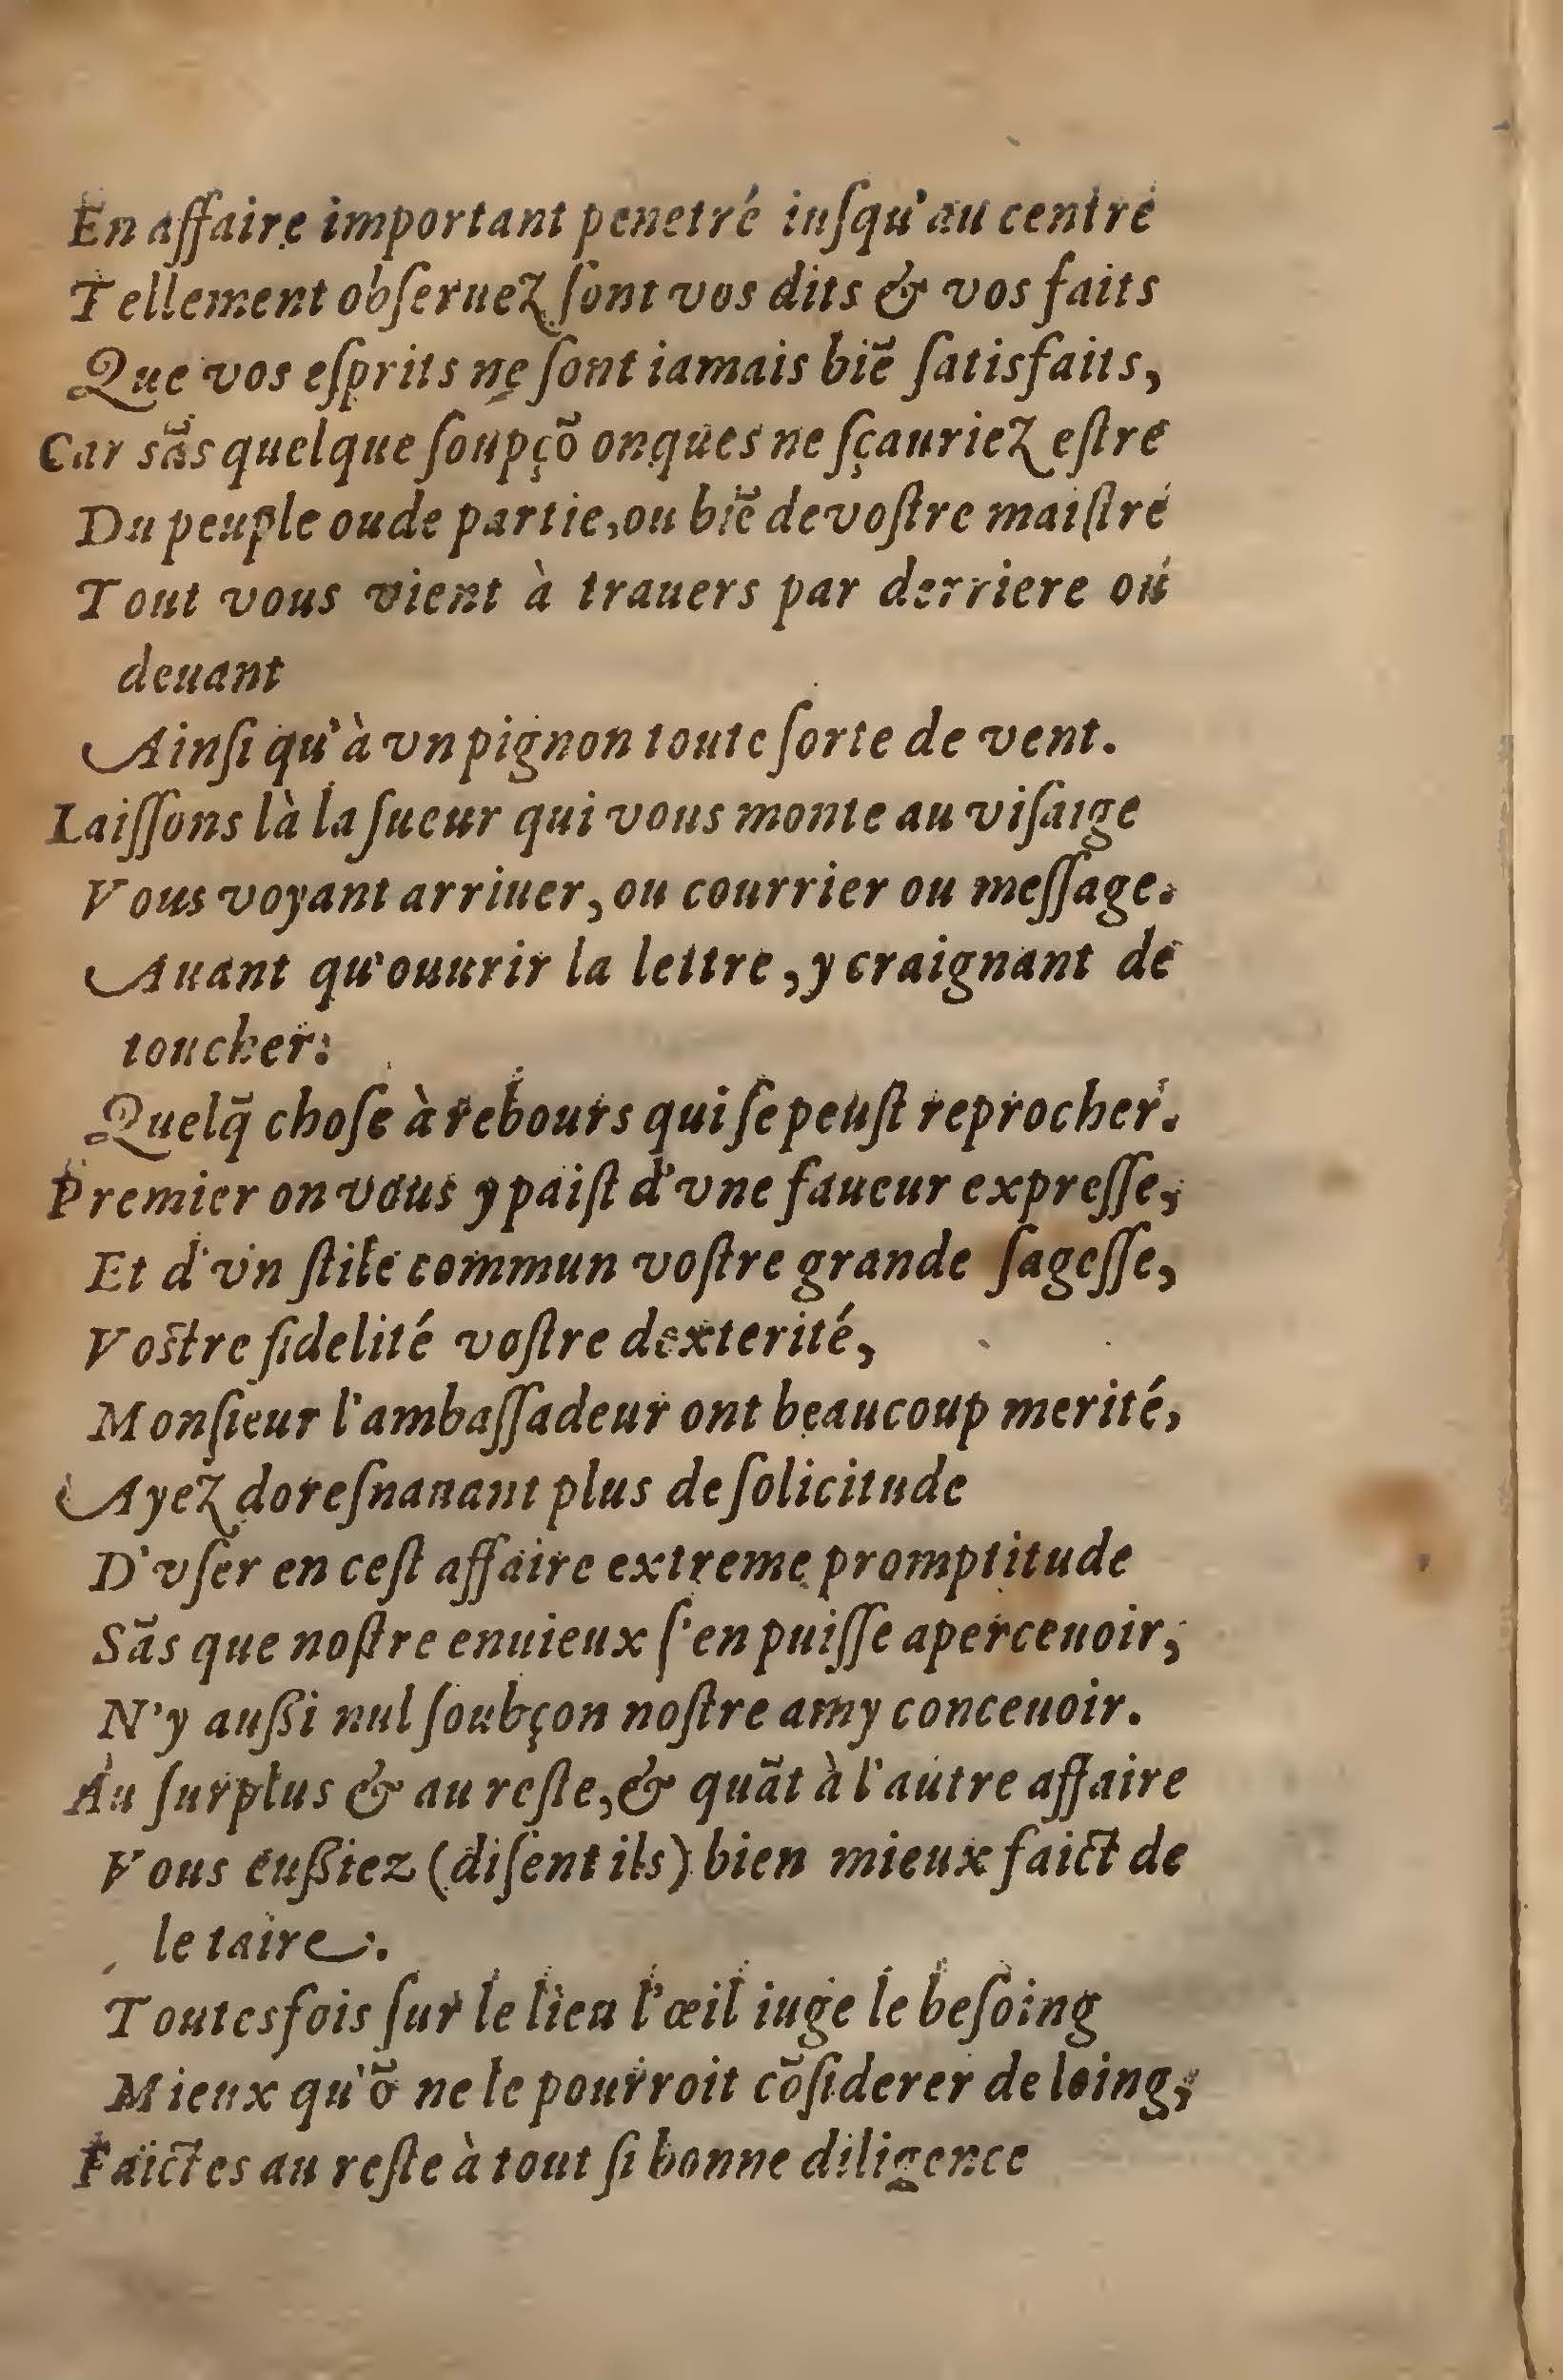 En affaire important penetré iuſqu'au centre
Tellement obſeruez ſont vos dits & vos faits
Que vos eſprits ne ſont iamais biẽ ſatisfaits,
Car sãs quelque ſoupçõ onques ne ſçauriez eſtre
Du peuple ou de partie, ou biẽ de voſtre maiſtre
Tout vous vient à trauers par derriere ou
deuant
Ainſi qu'à vn pignon toute ſorte de vent.
Laiſſons là la ſueur qui vous monte au viſaige
Vous voyant arriuer, ou courrier ou meſſage.
Auant qu'ouurir la lettre, y craignant de
toucher:
Quelq̃ choſe à rebours qui ſe peuſt reprocher.
Premier on vous y paiſt d'vne faueur expreſſe,
Et d'vn ſtile commun voſtre grande ſageſſe,
Voſtre fidelité voſtre dexterité,
Monſieur l'ambaſſadeur ont beaucoup merité,
Ayez doreſnauant plus de ſolicitude
D'vſer en ceſt affaire extreme promptitude
Sãs que noſtre enuieux ſ'en puiſſe aperceuoir,
N'y außi nul ſoubçon noſtre amy conceuoir.
Au ſurplus & au reſte, & quãt à l'autre affaire
Vous eußiez (diſent ils) bien mieux faict de
le taire.
Toutesfois ſur le lieu l'œil iuge le beſoing
Mieux qu'õ ne le pourroit cõſiderer de loing,
Faictes au reſte à tout ſi bonne diligence